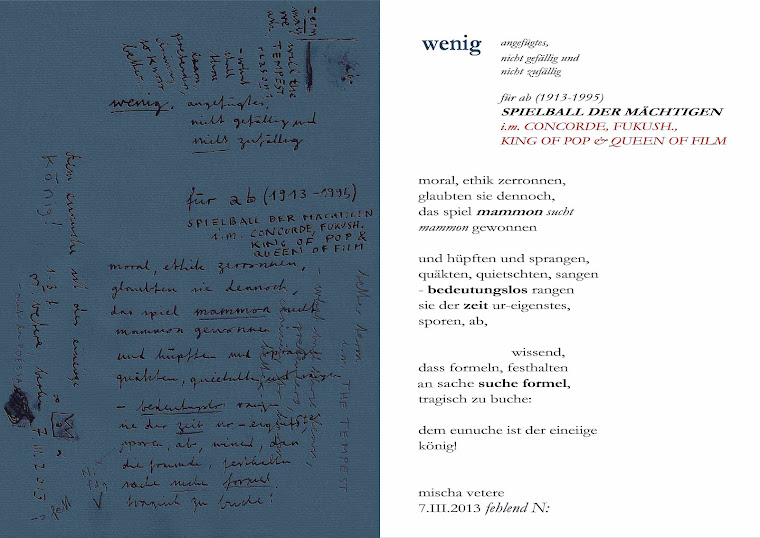 term
wenig, angefügtes,
nicht gefällig und
nicht zufällig
für ab (1913-1995)
SPIELBALL DER MÄCHTIGEN
i.m. CONCORDE, FUKUSH.
KING OF POP &
QUEEN OF FILM
moral, ethik zerronnen,
glaubten sie dennoch,
das spiel mammon sucht
mammon gewonnen
und hüpften und sprangen
quäkten, quietschten, und sangen
- bedeutungslos
sie der zeit ur-eigenstes
sporen, ab, wissend, dass
die formeln, festhalten
sache suche formel
tragisch zu buche!
dem eunuche ist der eineiige
König!
THE TEMPEST
7.III.2013
wenig
angefügtes,
nicht gefällig und
nicht zufällig
für ab (1913-1995)
SPIELBALL DER MÄCHTIGEN
i.m. CONCORDE, FUKUSH.,
KING OF POP & QUEEN OF FILM
moral, ethik zerronnen,
glaubten sie dennoch,
das spiel mammon sucht
mammon gewonnen
und hüpften und sprangen,
quäkten, quietschten, sangen
- bedeutungslos rangen
sie der zeit ur-eigenstes,
sporen, ab,
wissend,
dass formeln, festhalten
an sache suche formel,
tragisch zu buche:
dem eunuche ist der eineiige
könig!
mischa vetere
7.III.2013 fehlend N: